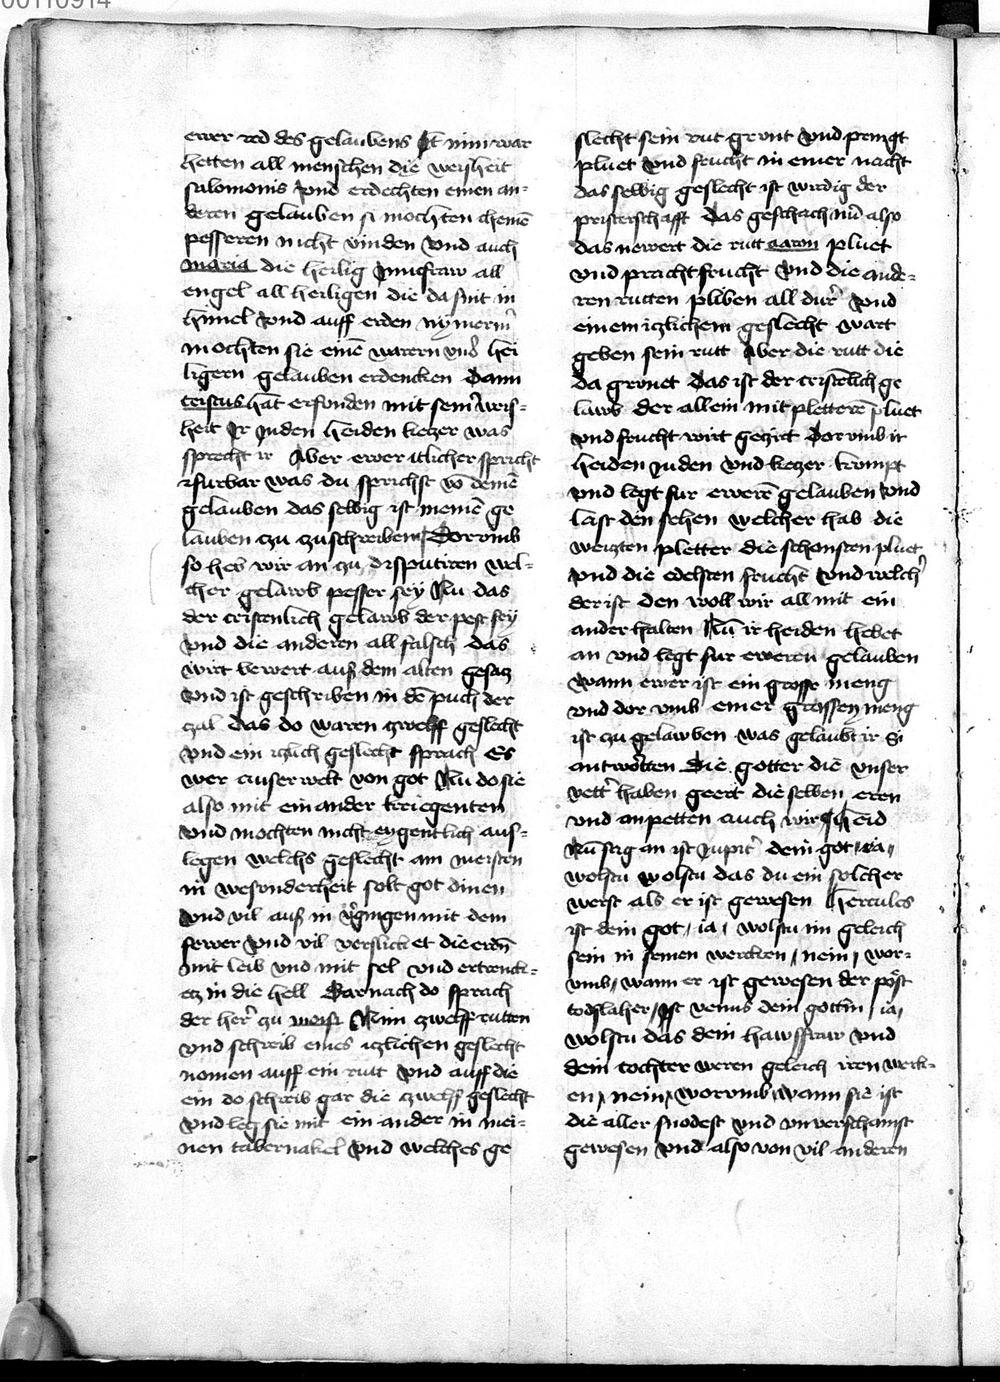 00110914
ewer red des gelaubens Jt nim war
hetten all menschen die weisheit
salomonis vnd erdechten einen an=
deren gelauben si mochten chemē
pesseren nicht vinden vnd auch
maria die heilig Junifraw all
engel all heiligen die da sint in
himel vnd auff erden nymerm̄
mochten sie einē warern vnd̓ hei
ligern gelauben erdencken Dann
cristus hat erfonden mit sein̓ weis=
heit Ir Juden heiden ketzer was
sprecht ir Aber ewer itlicher spricht
furbar was du sprichst vō deinē
gelauben das selbig ist meinē ge
lauben zu zuschreiben Dorvmb
so heb wir an zu disputiren wel=
cher gelawb pesser sey Nu das
der cristenlich gelawb der pest sey
vnd die anderen all falsch das
wirt bewert auß dem alten gesatz
vnd ist geschriben in dē puch der
zal das do waren zwelff geslecht
vnd ein itzlich geslecht sprach Es
wer auserwelt von got Nu do sie
also mit einander kriegenten
vnd mochten nicht eygentlich aus=
legen welchs geslecht am meisten
in wesonderheit solt got dinen
vnd vil auß in v̓gingen mit dem
fewer vnd vil verslicket die erdn̄
mit leib vnd mit sel vnd ertrenck=
etz in die hell Darnach do sprach
der her̓ zu moisi Nim zwelff rutten
vnd schreib eines itzlichen geslecht
nomen auff ein rutt vnd auff die
ein do schreib gar die zwelff geslecht
vnd leg sie mit ein ander in mei=
nen tabernakel vnd welches ge
slecht sein rut grunt vnd pringt
pluet vnd frucht in einer nacht
das selbig geslecht ist wirdig der
pristerschafft Das geschach nū also
das newert die rutt aaron pluet
vnd pracht frucht vnd die ande=
ren rutten pliben all dur̓ vnd
einem itzlichem geslecht wart
geben sein rutt Aber die rutt die
da gronet das ist der cristēlich ge
lawb der allein mit pletterē pluet
vnd frucht wirt geczirt Dorvmb ir
heiden Juden vnd ketzer kumpt
vnd legt fur ewerē gelauben vnd
last den sehen welcher hab die
weizten pletter die schonsten pluet
vnd die edelsten frucht vnd welch̓
der ist den woll wir all mit ein
ander halten Nū ir heiden hebet
an vnd legt fur eweren gelauben
wann ewer ist ein grosse meng
vnd dor vmb einer grossen meng
ist zu gelawben was gelaubt ir Si
antwotten Die gotter die vnser
vett̓ haben geert die selben eren
vnd anpetten auch wir Heid
Nū sag an ist Jupit̓ dein got / ia /
wolstu wolstu das du ein solcher
werst als er ist gewesen Hercules
ist dein got / ia / wolstu im geleich
sein in seinen wercken / nein / wor=
vmb / wann er ist gewesen der pöst
todslaher / Ist venus dein gottin / ia /
wolstu das dein hawsfraw vnd
dein tochter weren geleich iren werk=
en / nein / worvmb / wann sie ist
die aller snodest vnd vnverschamst
gewesen vnd also von vil anderen